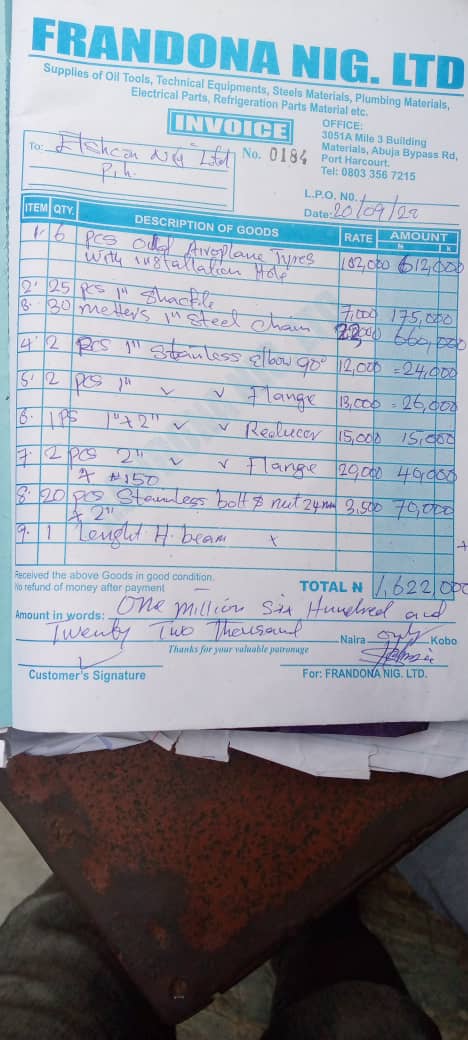 FRANDONA NIG. LTD
Supplies of Oil Tools, Technical Equipments, Steels Materials, Plumbing Materials,
Electrical Parts, Refrigeration Parts Material etc.
INVOICE
OFFICE:
3051A Mile 3 Building
Materials, Abuja Bypass Rd,
Port Harcourt.
Tel: 0803 356 7215
To: Nig Ltd
P.h.
No. 0184
L.P.O. NO.
Date: 20/09/22
ITEM QTY. DESCRIPTION OF GOODS RATE AMOUNT
N K
1. 6 pcs Aroplane Tyres
with installation Hole 102,000 612,000
2. 25 pcs 1" Shackle 7,000 175,000
3. 30 metters 1" Steel chain 22,000 660,000
4. 2 pcs 1" Stainless elbow 90° 12,000 = 24,000
5. 2 pcs 1" ✓ ✓ Flange 13,000 = 26,000
6. 1 PS 1"x2" ✓ ✓ Reducer 15,000 15,000
7. 2 pcs 2" ✓ ✓ Flange 20,000 40,000
x #150
8. 20 pcs Stainless bolt & nut 24mm 3,500 70,000
x 2"
9. 1 Lenght H. beam x +
Received the above Goods in good condition.
No refund of money after payment
TOTAL N 1,622,000
Amount in words: One million Six Hundred and
Twenty Two Thousand Naira only Kobo
Thanks for your valuable patronage
Customer's Signature
For: FRANDONA NIG. LTD.
FRANDONA NIG. LTD